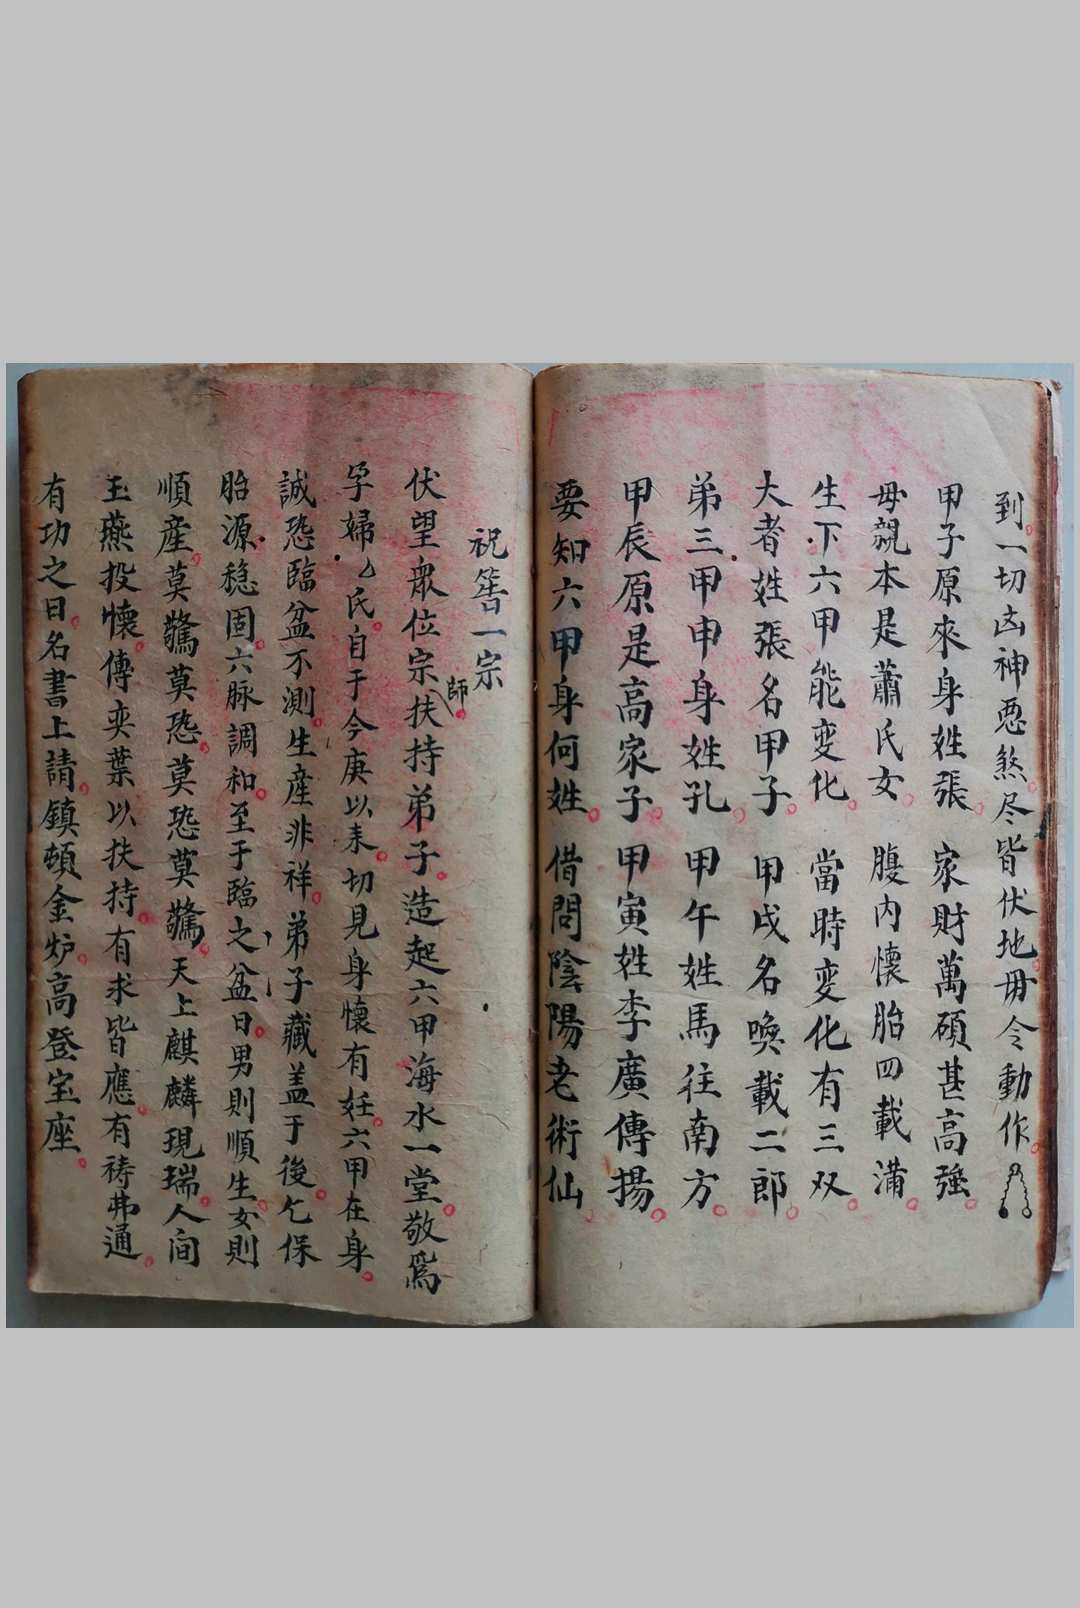 到一切凶神惡煞尽皆伏地毋令動作
甲子原來身姓張 家財萬碩甚高強
毋親本是蕭氏女 腹内懷胎四載满
生下六甲能变化 當時变化有三双
大者姓張名甲子 甲戌名喚載二郎
弟三甲申身姓孔 甲午姓馬往南方
甲辰原是高家子 甲寅姓李廣傳揚
要知六甲身何姓 借問陰陽老術仙
祝筶一宗
伏望眾位宗師扶持弟子造起六甲海水一堂敬爲
孕婦厶氏自于今庚以耒切見身懷有妊六甲在身
誠恐臨盆不測生産非祥弟子藏盖于後乞保
胎源稳固六脉調和至于臨之盆日男則順生女則
順産莫驚莫恐莫恐莫驚天上麒麟現瑞人间
玉燕投懷傳奕葉以扶持有求皆應有祷弗通
有功之日名書上請鎮頓金炉高登宝座